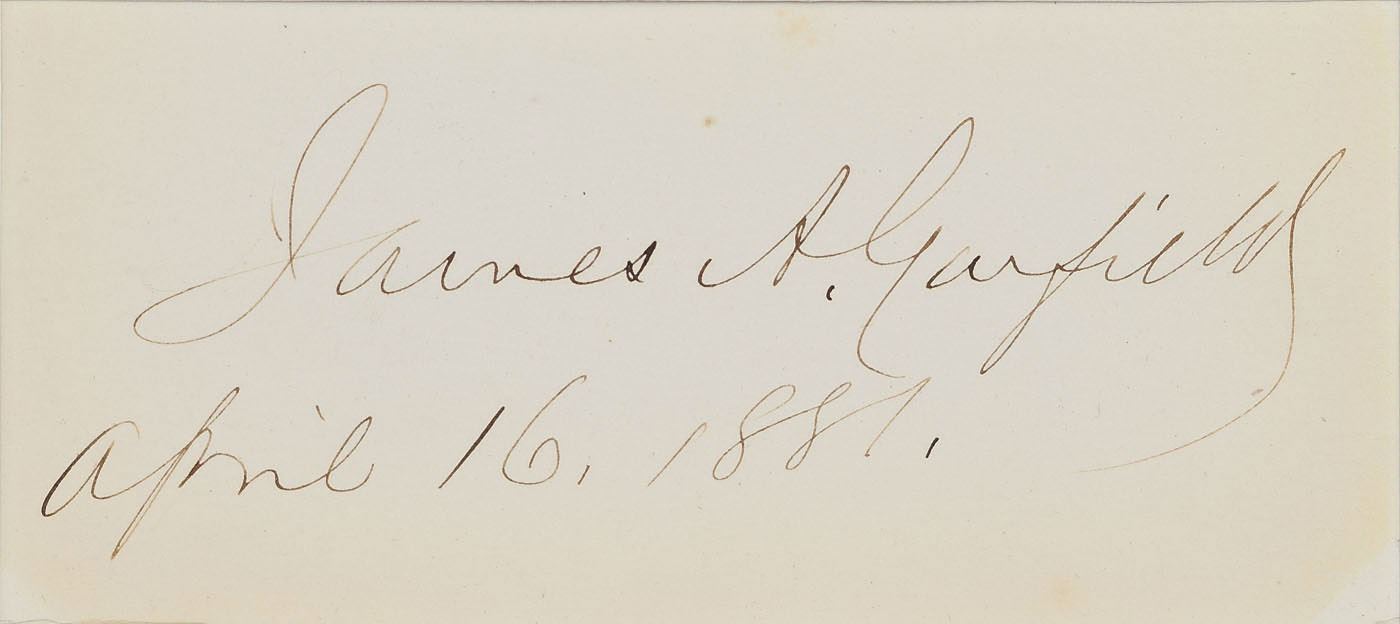 James A. Garfield
April 16, 1881.